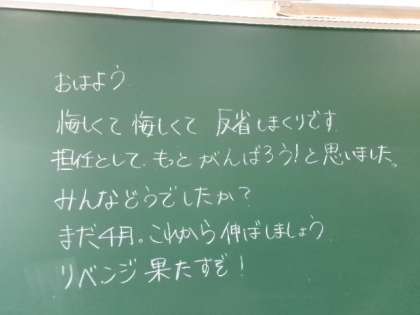 おはよう
悔しくて 悔しくて 反省しまくりです
担任として、もっと がんばろう!と思いました。
みんなどうでしたか?
まだ4月。これから 伸ばしましょう
リベンジ 果たすぞ!